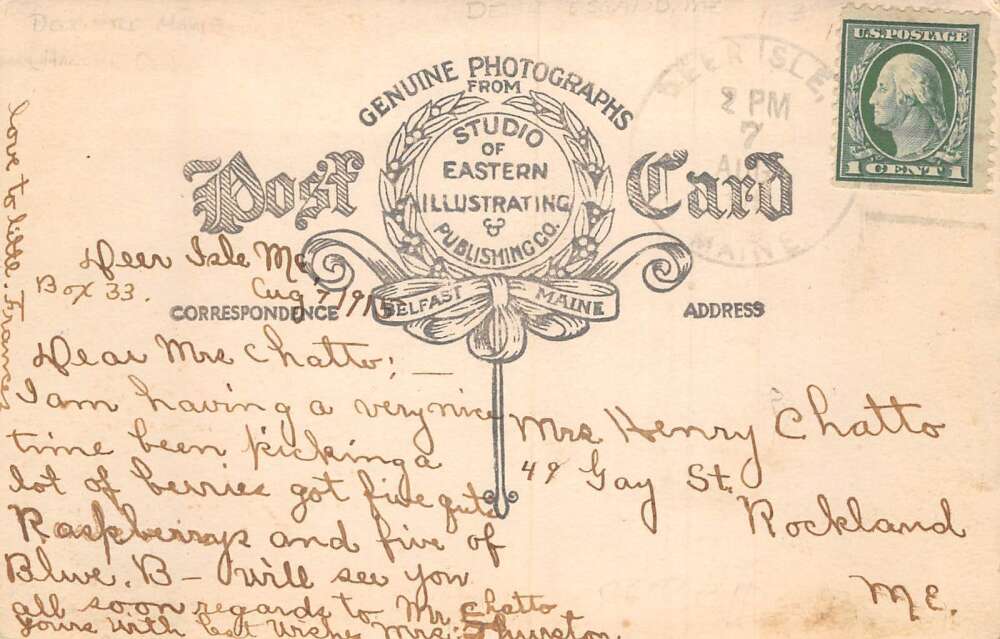 GENUINE PHOTOGRAPHS
FROM
STUDIO
OF
EASTERN
ILLUSTRATING
&
PUBLISHING CO.
BELFAST MAINE
Post Card
CORRESPONDENCE
ADDRESS
DEER ISLE,
2 PM
7
AUG
MAINE
U.S. POSTAGE
1 CENT 1
Deer Isle Me,
Box 33. Aug 7/1915
Dear Mrs Chatto;
I am having a very nice
time been picking a
lot of berries got five qts
Raspberrys and five of
Blue. B- will see you
all soon regards to Mr Chatto
yours with best wishes Mrs. Thurston
love to little. Frances
Mrs Henry Chatto
49 Gay St.
Rockland
ME.